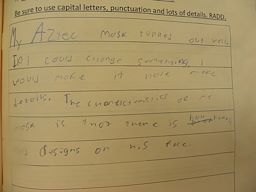 Be sure to use capital letters, punctuation and lots of details. RADD.
My Aztec mask turned out well
If I could change something I
would make it more more
details. The characteristics of my
mask is that there is
designs on his face.